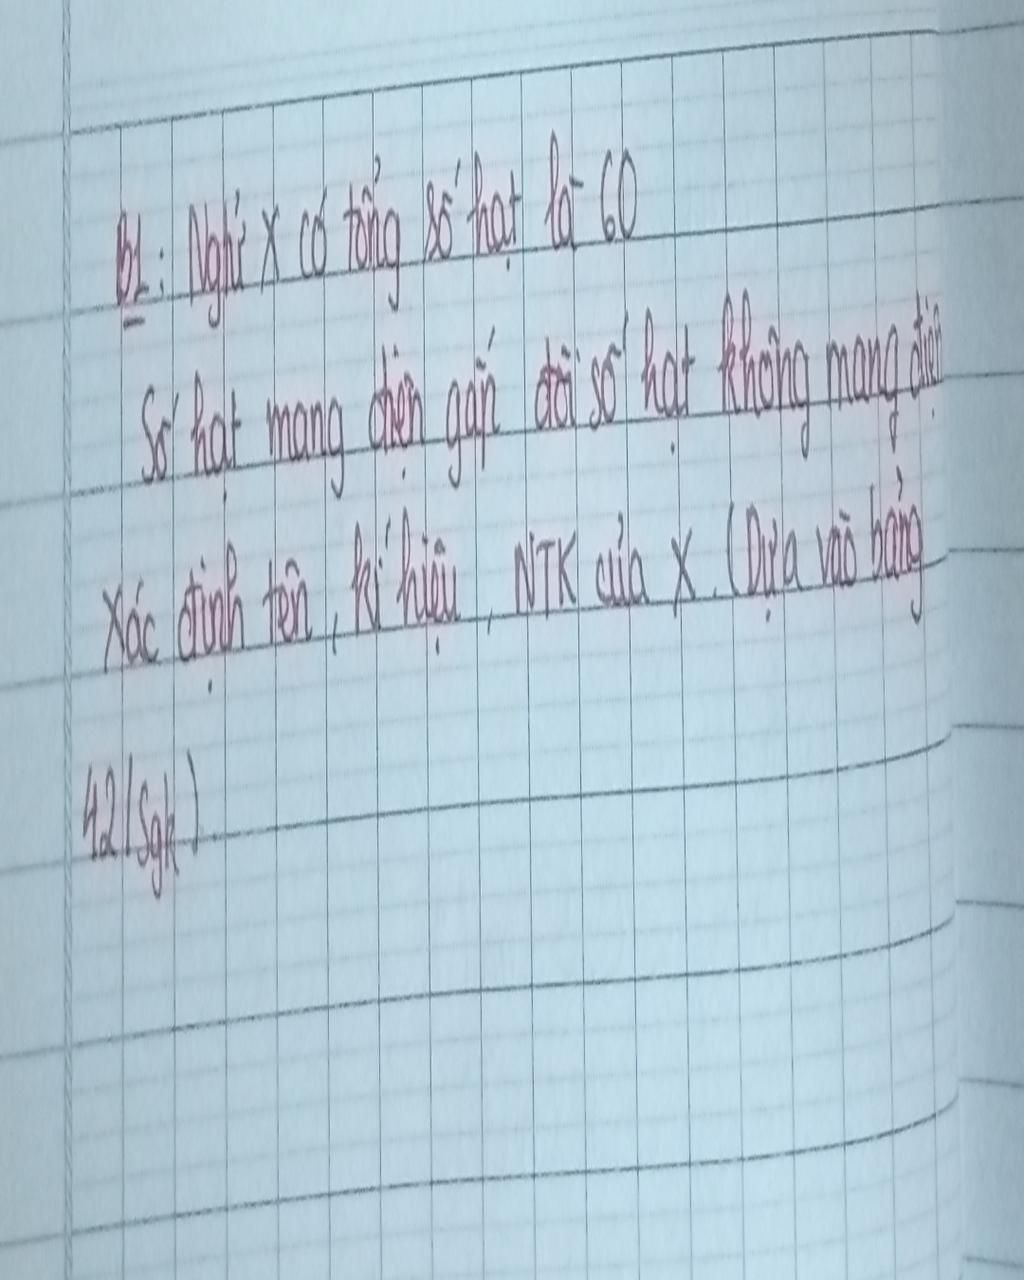 B1: Nghtử X có tổng số hạt là 60
Số hạt mang điện gấp đôi số hạt không mang điện
Xác định tên, kí hiệu, NTK của X. (Dựa vào bảng
42/Sgk)